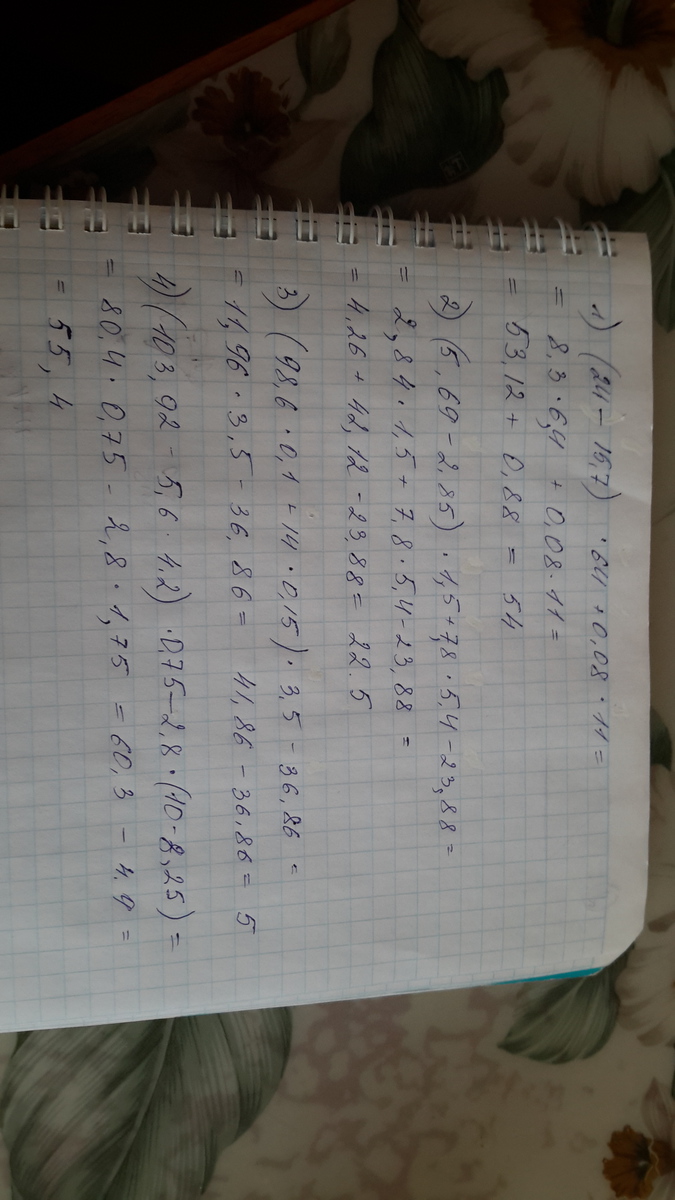 1) (24 - 15,7) · 64 + 0,08 · 11 =
= 8,3 · 6,4 + 0,08 · 11 =
= 53,12 + 0,88 = 54
2) (5,69 - 2,85) · 1,5 + 7,8 · 5,4 - 23,88 =
= 2,84 · 1,5 + 7,8 · 5,4 - 23,88 =
= 4,26 + 42,12 - 23,88 = 22.5
3) (98,6 · 0,1 + 14 · 0,15) · 3,5 - 36,86 =
= 11,96 · 3,5 - 36,86 = 41,86 - 36,86 = 5
4) (103,92 - 5,6 · 4,2) · 0,75 - 2,8 · (10 - 8,25) =
= 80,4 · 0,75 - 2,8 · 1,75 = 60,3 - 4,9 =
= 55,4